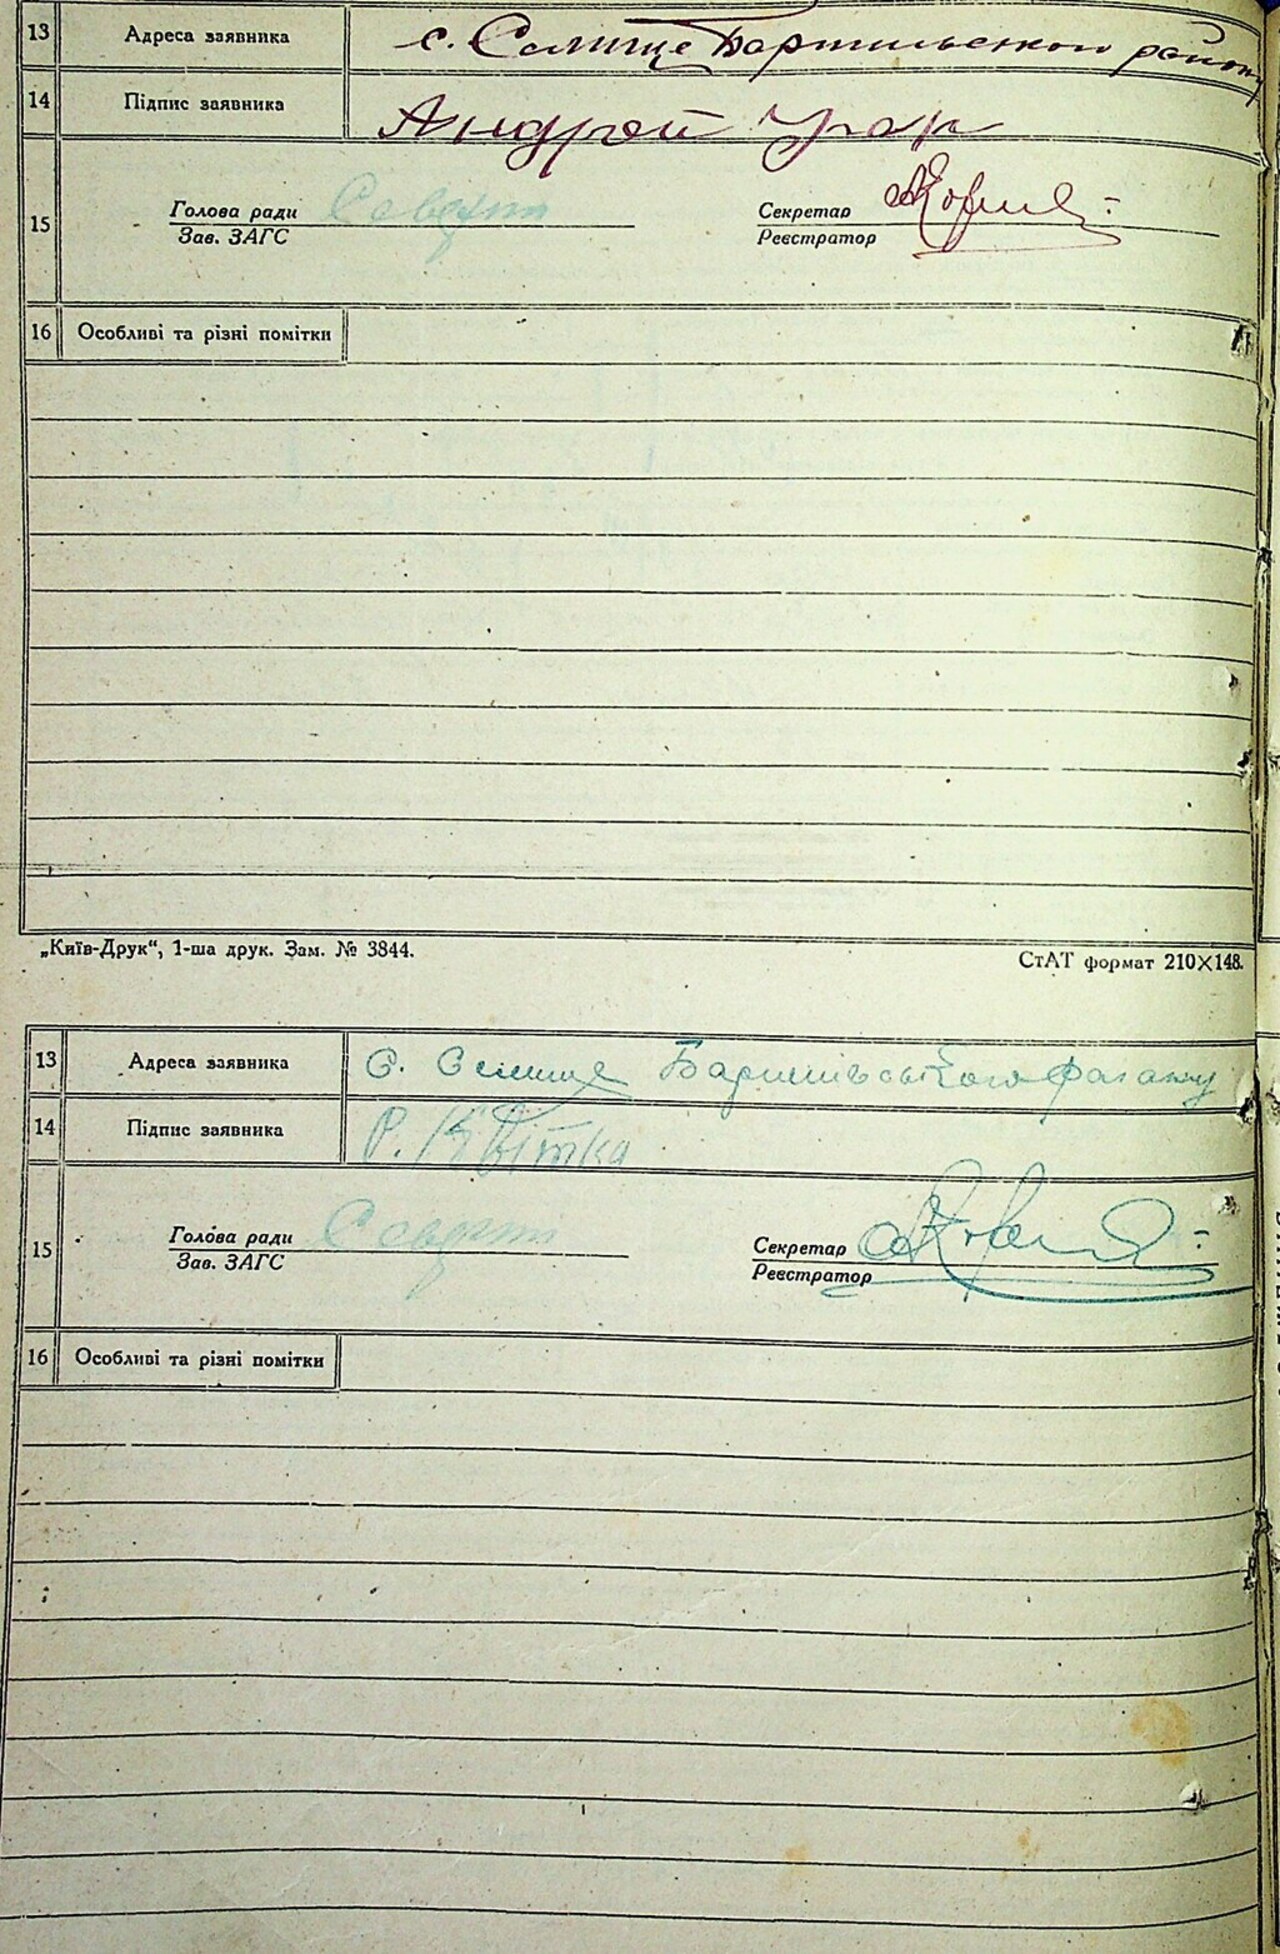 13 Адреса заявника с. Селище Баришівського району
14 Підпис заявника Андрей
15 Голова ради Секретар
Зав. ЗАГС Реєстратор
16 Особливі та різні помітки
„Київ-Друк“, 1-ша друк. Зам. № 3844. СтАТ формат 210×148.
13 Адреса заявника с. Селище Баришівського району
14 Підпис заявника Р. Квітка
15 Голова ради Секретар
Зав. ЗАГС Реєстратор
16 Особливі та різні помітки